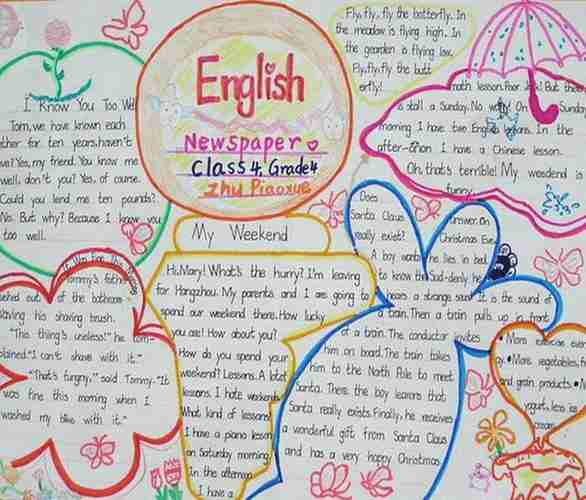 English
Newspaper
Class 4, Grade 4
Zhu Piaoxue
I Know You Too Well
Tom, we have known each
other for ten years, haven't
we? Yes, my friend. You know me
well, don't you? Yes, of course.
Could you lend me ten pounds?
No. But why? Because I know you
too well.
Fly, fly, fly the butterfly. In
the meadow is flying high. In
the gearden is flying low.
Fly, fly, fly the butt
erfly!
math lesson. Poor you! But there
is stall a Sunday. No worry! On Sunday
morning I have two English lessons. In the
after-thon I have a Chinese lesson.
Oh, that's terrible! My weedend is
funny.
My Weekend
Hi, Mary! What's the hurry? I'm leaving
for Hangzhou. My parents and I are going to
spend our weekend there. How lucky
you are! How about you?
How do you spend your
weekend? Lessons. A lot
lessons. I hate weekends
What kind of lessons?
I have a piano lesson
on Saturday morning
In the afternoon
I have a
Does
Santa Claus
really exist?
answer. On
Christmas Eve
A boy wants he lies in bed
to know the Sud-denly he
hears a strange sound. It is the sound of
a train. Then a train pulls up in front
of a train. The conductor invites
him on board. The train takes
him to the North Pole to meet
Santa. There the boy learns that
Santa really exists. Finally, he receives
a wonderful gift from Santa Claus
and has a very happy Christmas
It Was Fine This Morning
Tommy's father
rushed out of the bathroom
waving his shaving brush.
"This thing's useless!" he com-
plained. "I can't shave with it."
"That's fungny," said Tommy. "It
was fine this morning when I
washed my bike with it."
• More exercise every
• More vegetables, fruits
and grain products. •
yogurt, less ice
cream